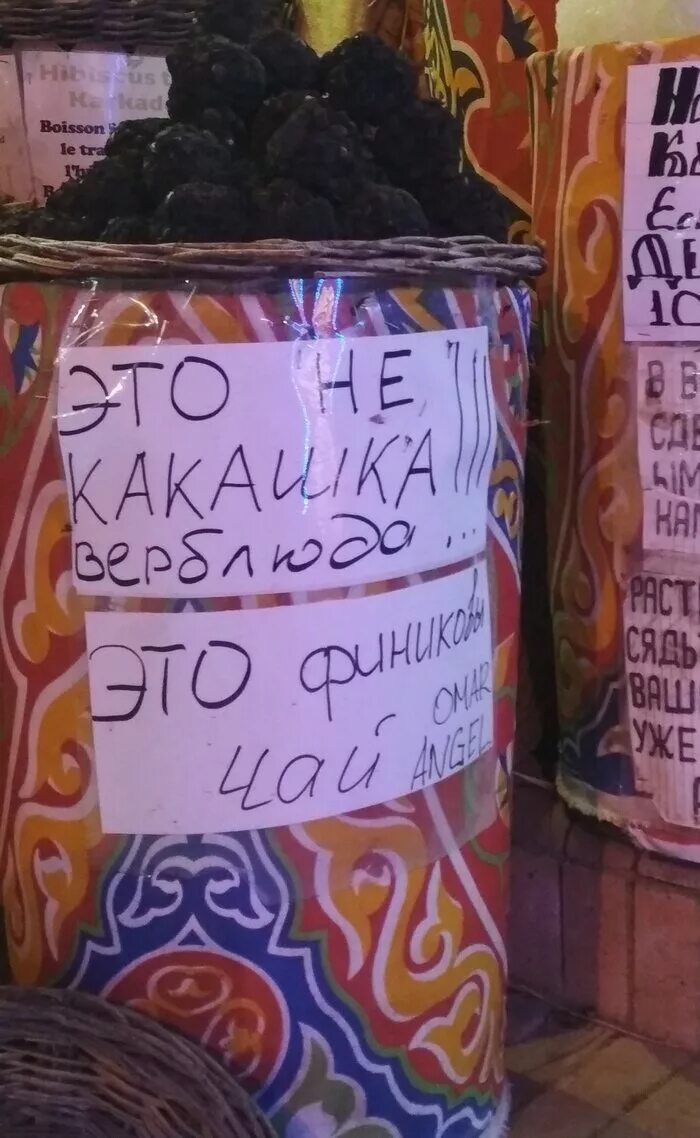 Hibiscus
Karkad
Boisson
le tra
ЭТО НЕ
КАКАШКА!!!
верблюда...
ЭТО финиковы
чай
OMAR
ANGEL
Ка
ДЕ
10
В В
СДЕ
ЫМ
РАСТ
СЯДЬ
ВАШ
УЖЕ